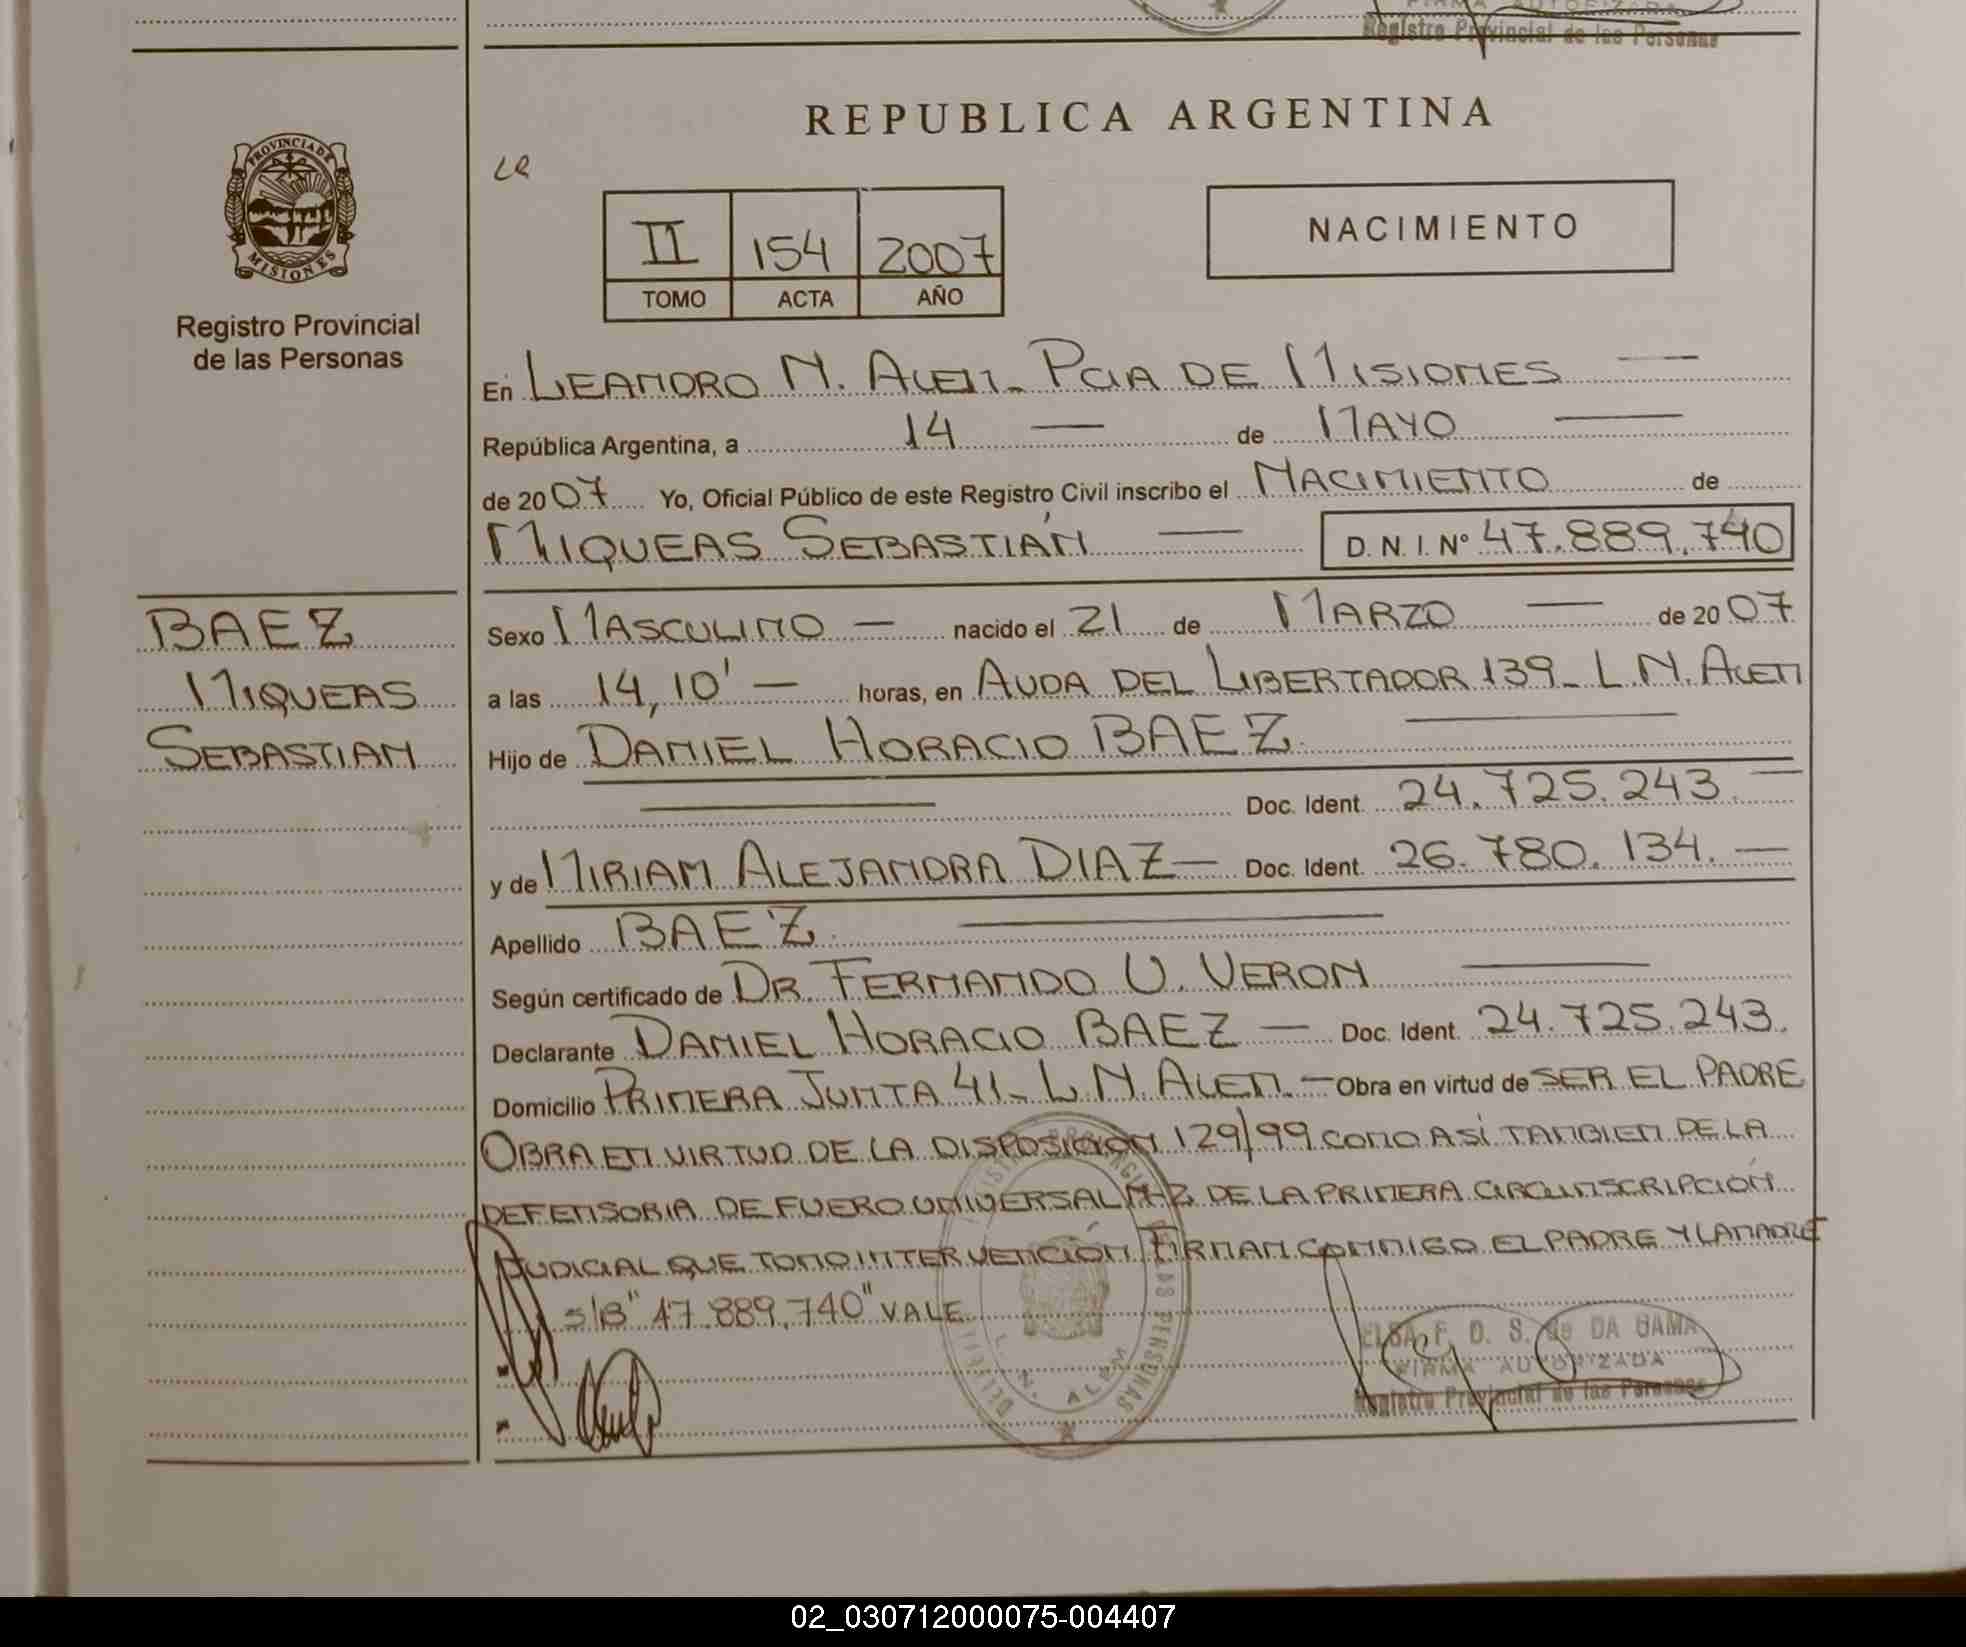 Registro Provincial de las Personas
REPUBLICA ARGENTINA
PROVINCIA DE
MISIONES
Registro Provincial
de las Personas
II 154 2007
TOMO ACTA AÑO
NACIMIENTO
En LEANDRO N. ALEM - PCIA DE MISIONES
República Argentina, a 14 de MAYO
de 2007 Yo, Oficial Público de este Registro Civil inscribo el NACIMIENTO de
MIQUEAS SEBASTIÁN D.N.I. Nº 47.889.740
BAEZ
MIQUEAS
SEBASTIAN
Sexo MASCULINO - nacido el 21 de MARZO de 2007
a las 14,10' - horas, en AVDA DEL LIBERTADOR 139 - L.N. ALEM
Hijo de DANIEL HORACIO BAEZ
Doc. Ident. 24.725.243. -
y de MIRIAM ALEJANDRA DIAZ - Doc. Ident. 26.780.134. -
Apellido BAEZ
Según certificado de DR. FERNANDO U. VERON
Declarante DANIEL HORACIO BAEZ - Doc. Ident. 24.725.243.
Domicilio PRIMERA JUNTA 41 - L.N. ALEM. - Obra en virtud de SER EL PADRE
OBRA EN VIRTUD DE LA DISPOSICIÓN 129/99 COMO ASÍ TAMBIEN DE LA
DEFENSORIA DE FUERO UNIVERSAL Nº2 DE LA PRIMERA CIRCUNSCRIPCIÓN
JUDICIAL QUE TOMO INTERVENCIÓN FIRMAN CONMIGO EL PADRE Y LA MADRE
S/B "47.889.740" VALE
ELBA F. D. S. de DA GAMA
FIRMA AUTORIZADA
Registro Provincial de las Personas
L. N. ALEM
02_030712000075-004407